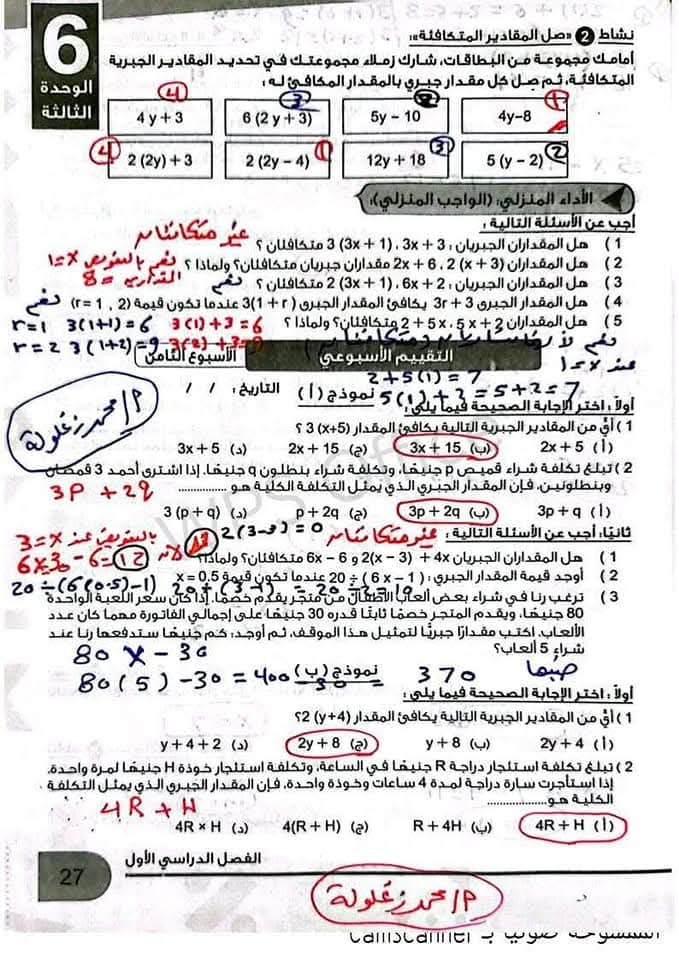 6
الوحدة
الثالثة
نشاط 2 «صل المقادير المتكافئة»:
أمامك مجموعة من البطاقات، شارك زملاء مجموعتك في تحديد المقادير الجبرية
المتكافئة، ثم صل كل مقدار جبري بالمقدار المكافئ له:
4 3 2 1
4 y + 3 6 (2 y + 3) 5y – 10 4y–8
2 (2y) + 3 2 (2y – 4) 12y + 18 5 (y – 2)
4 1 3 2
الأداء المنزلي: (الواجب المنزلي):
أجب عن الأسئلة التالية:
1 ) هل المقداران الجبريان : 3x + 3 ، 3 (3x + 1) متكافئان ؟ غير متكافئان
2 ) هل المقداران 2 (x + 3) ، 2x + 6 مقداران جبريان متكافئان؟ ولماذا ؟ نعم بالتعويض x = 1
المقدارين = 8
3 ) هل المقداران الجبريان : 6x + 2 ، 2 (3x + 1) متكافئان ؟ نعم
4 ) هل المقدار الجبرى 3r + 3 يكافئ المقدار الجبرى 3(1 + r) عندما تكون قيمة (r = 1 , 2) نعم
r = 1 3(1+1) = 6 3(1)+3 = 6
5 ) هل المقداران 5x + 2 ، 2 + 5x متكافئان؟ ولماذا ؟
r = 2 3(1+2) = 9 3(2)+3=9
عند x = 1
2+5(1) = 7
5(1)+2=5+2=7
التقييم الأسبوعي الأسبوع الثامن
نموذج (أ) التاريخ: / /
م/محمد زغلولة
أولاً: اختر الإجابة الصحيحة فيما يلى:
1 ) أيٌّ من المقادير الجبرية التالية يكافئ المقدار 3 (x+5) ؟
(أ) 2x + 5 (ب) 3x + 15 (ج) 2x + 15 (د) 3x + 5
2 ) تبلغ تكلفة شراء قميص p جنيهًا، وتكلفة شراء بنطلون q جنيهًا. إذا اشترى أحمد 3 قمصان
وبنطلونين، فإن المقدار الجبري الذي يمثل التكلفة الكلية هو........
3P + 2q
(أ) 3p + q (ب) 3p + 2q (ج) p + 2q (د) 3 (p + q)
ثانيًا: أجب عن الأسئلة التالية : غير متكافئان بالتعويض عند x = 3
2(3-3) = 0
1 ) هل المقداران الجبريان 2(x – 3) + 4x و 6x – 6 متكافئان؟ ولماذا؟
6×3 - 6 = 12
2 ) أوجد قيمة المقدار الجبري : 20 ÷ (6x – 1) عندما تكون قيمة x = 0.5
20÷(6(0.5)-1)
3 ) ترغب رنا في شراء بعض ألعاب الأطفال من متجر يقدم خصمًا. إذا كان سعر اللعبة الواحدة
80 جنيهًا، ويقدم المتجر خصمًا ثابتًا قدره 30 جنيهًا على إجمالي الفاتورة مهما كان عدد
الألعاب. اكتب مقدارًا جبريًّا لتمثيل هذا الموقف، ثم أوجد: كم جنيهًا ستدفعها رنا عند
شراء 5 ألعاب؟
80 X – 30
80(5) – 30 = 400 - 30 370 جنيها
نموذج (ب)
أولاً : اختر الإجابة الصحيحة فيما يلى:
1 ) أيٌّ من المقادير الجبرية التالية يكافئ المقدار 2 (y+4) ؟
(أ) 2y + 4 (ب) y + 8 (ج) 2y + 8 (د) y + 4 + 2
2 ) تبلغ تكلفة استئجار دراجة R جنيهًا في الساعة، وتكلفة استئجار خوذة H جنيهًا لمرة واحدة.
إذا استأجرت سارة دراجة لمدة 4 ساعات وخوذة واحدة، فإن المقدار الجبري الذي يمثل التكلفة
الكلية هو........
4R + H
(أ) 4R + H (ب) R + 4H (ج) 4(R + H) (د) 4R × H
27 الفصل الدراسي الأول
م/محمد زغلولة
الممسوحة ضوئيا بـ CamScanner